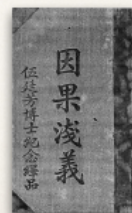 因果淺義
伍廷芳博士紀念贈品